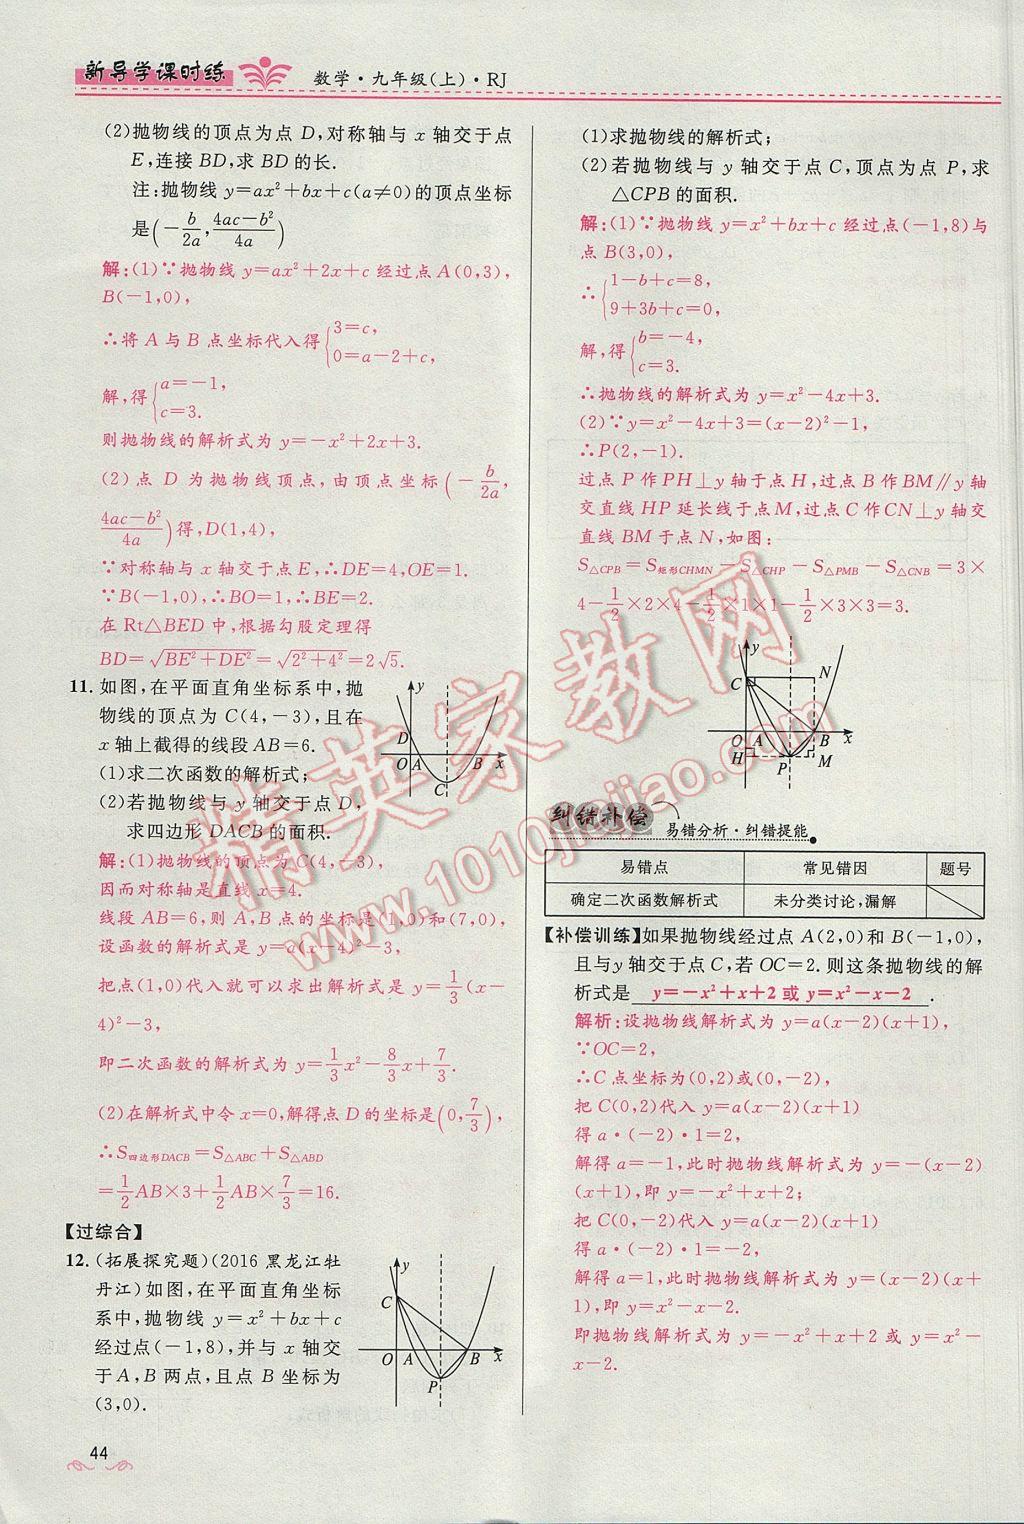 新导学课时练 数学·九年级(上)·RJ
(2)抛物线的顶点为点 D,对称轴与 x 轴交于点
E,连接 BD,求 BD 的长.
注:抛物线 y=ax²+bx+c(a≠0)的顶点坐标
是(-b/2a, (4ac-b²)/4a)
解:(1)∵抛物线 y=ax²+2x+c 经过点 A(0,3),
B(-1,0),
∴将 A 与 B 点坐标代入得{3=c, 0=a-2+c,
解,得{a=-1, c=3.
则抛物线的解析式为 y=-x²+2x+3.
(2)点 D 为抛物线顶点,由顶点坐标(-b/2a,
(4ac-b²)/4a)得,D(1,4),
∵对称轴与 x 轴交于点 E,∴DE=4,OE=1.
∵B(-1,0),∴BO=1,∴BE=2.
在 Rt△BED 中,根据勾股定理得
BD=√(BE²+DE²)=√(2²+4²)=2√5.
11.如图,在平面直角坐标系中,抛
物线的顶点为 C(4,-3),且在
x 轴上截得的线段 AB=6.
(1)求二次函数的解析式;
(2)若抛物线与 y 轴交于点 D,
求四边形 DACB 的面积.
y D O A B x C
解:(1)抛物线的顶点为 C(4,-3),
因而对称轴是直线 x=4.
线段 AB=6,则 A,B 点的坐标为(1,0)和(7,0),
设函数的解析式是 y=a(x-4)²-3,
把点(1,0)代入就可以求出解析式是 y=1/3(x-
4)²-3,
即二次函数的解析式为 y=1/3x²-8/3x+7/3.
(2)在解析式中令 x=0,解得点 D 的坐标是(0,7/3),
∴S四边形DACB=S△ABC+S△ABD
=1/2AB×3+1/2AB×7/3=16.
【过综合】
12.(拓展探究题)(2016 黑龙江牡
丹江)如图,在平面直角坐标
系中,抛物线 y=x²+bx+c
经过点(-1,8),并与 x 轴交
于 A,B 两点,且点 B 坐标为
(3,0).
y C O A B x P
44
(1)求抛物线的解析式;
(2)若抛物线与 y 轴交于点 C,顶点为点 P,求
△CPB 的面积.
解:(1)∵抛物线 y=x²+bx+c 经过点(-1,8)与
点 B(3,0),
∴{1-b+c=8, 9+3b+c=0,
解,得{b=-4, c=3.
∴抛物线的解析式为 y=x²-4x+3.
(2)∵y=x²-4x+3=(x-2)²-1,
∴P(2,-1).
过点 P 作 PH⊥y 轴于点 H,过点 B 作 BM∥y 轴
交直线 HP 延长线于点 M,过点 C 作 CN⊥y 轴交
直线 BM 于点 N,如图:
S△CPB=S矩形CHMN-S△CHP-S△PMB-S△CNB=3×
4-1/2×2×4-1/2×1×1-1/2×3×3=3.
y C N O A B x H P M
纠错补偿 易错分析·纠错提能
易错点 常见错因 题号
确定二次函数解析式 未分类讨论,漏解
【补偿训练】如果抛物线经过点 A(2,0)和 B(-1,0),
且与 y 轴交于点 C,若 OC=2.则这条抛物线的解
析式是 y=-x²+x+2 或 y=x²-x-2 .
解析:设抛物线解析式为 y=a(x-2)(x+1),
∵OC=2,
∴C 点坐标为(0,2)或(0,-2),
把 C(0,2)代入 y=a(x-2)(x+1)
得 a·(-2)·1=2,
解得 a=-1,此时抛物线解析式为 y=-(x-2)
(x+1),即 y=-x²+x+2;
把 C(0,-2)代入 y=a(x-2)(x+1)
得 a·(-2)·1=-2,
解得 a=1,此时抛物线解析式为 y=(x-2)(x+
1),即 y=x²-x-2.
即抛物线解析式为 y=-x²+x+2 或 y=x²-
x-2.
精英家教网
www.1010jiajiao.com